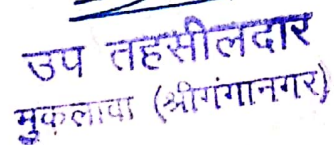 उप तहसीलदार
मुकलावा (श्रीगंगानगर)